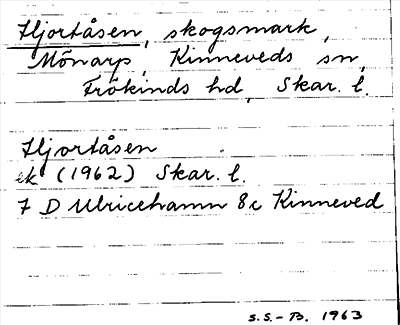 Hjortåsen, skogsmark,
Mönarp, Kinneveds sn,
Frökinds hd, Skar. l.
Hjortåsen
ek (1962) Skar. l.
7 D Ulricehamn 8c Kinneved
S.S.-B. 1963